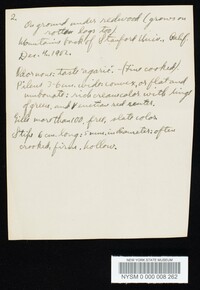 2
On ground under redwood (grows on
rotten logs too)
Mountains back of Stanford Univ. Calif
Dec. 9, 1902.
Odor none; taste "agaric". (Fine cooked).
Pileus 3-6 cm. wide; convex, or flat and
umbonate; rich cream color with tinge
of green, and venetian red center.
Gills more than 100, free, slate color
Stipe 6 cm. long; 5 mm. in diameter; often
crooked, firm, hollow.
NEW YORK STATE MUSEUM
NYSM 0 000 008 262